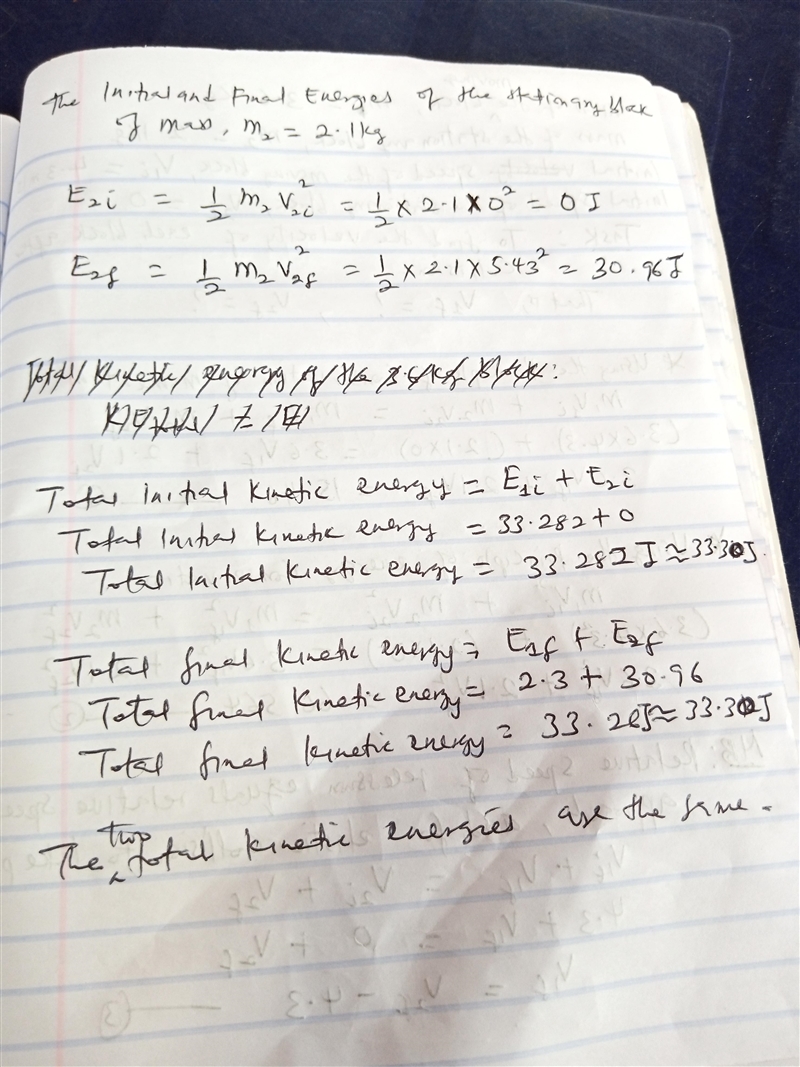 The Initial and Final Energies of the stationary block
of mass, m₂ = 2.1kg
E₂i = 1/2 m₂ V₂i² = 1/2 × 2.1 × 0² = 0 J
E₂f = 1/2 m₂ V₂f² = 1/2 × 2.1 × 5.43² = 30.96 J
Total kinetic energy of the
Total initial kinetic energy = E₁i + E₂i
Total initial kinetic energy = 33.282 + 0
Total initial kinetic energy = 33.282 J ≈ 33.30J.
Total final kinetic energy = E₁f + E₂f
Total final kinetic energy = 2.3 + 30.96
Total final kinetic energy = 33.26J ≈ 33.30J
The two total kinetic energies are the same.